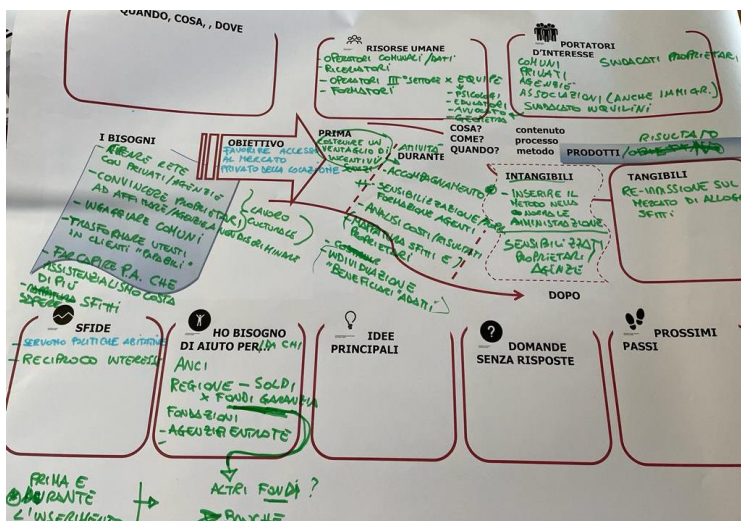 QUANDO, COSA, , DOVE
RISORSE UMANE
- OPERATORI COMUNALI /DATI
- RICERCATORI
- OPERATORI III° SETTORE x EQUIPE
- FORMATORI
- PSICOLOGI
- EDUCATORI
- AVVOCATO
- GEOMETRA
PORTATORI
D'INTERESSE
COMUNI
SINDACATI PROPRIETARI
PRIVATI
AGENZIE
ASSOCIAZIONI (ANCHE IMMIGR.)
SINDACATO INQUILINI
I BISOGNI
- TENERE RETE
CON PRIVATI/AGENZIE
- CONVINCERE PROPRIETARI
AD AFFITTARE/AGENZIE A
NON DISCRIMINARE
- INGAGGIARE COMUNI
- TRASFORMARE UTENTI
IN CLIENTI "PAGABILI"
- FAR CAPIRE P.A. CHE
ASSISTENZIALISMO COSTA
DI PIÙ
SAPERE SFITTI
(LAVORO
CULTURALE)
OBIETTIVO
FAVORIRE ACCESSO
AL MERCATO
PRIVATO DELLA LOCAZIONE
PRIMA
COSTRUIRE UN
VENTAGLIO DI
INCENTIVI
ATTIVITÀ
DURANTE
ACCOMPAGNAMENTO
SENSIBILIZZAZIONE PROPR.
FORMAZIONE AGENTI
- ANALISI COSTI/RISULTATI
- MAPPATURA SFITTI E
PROPRIETARI
- INDIVIDUAZIONE
"BENEFICIARI" ADATTI
COSA?
COME?
QUANDO?
contenuto
processo
metodo
RISULTATO
PRODOTTI /
INTANGIBILI
- INSERIRE IL
METODO NELLA
NORMALE
AMMINISTRAZIONE
SENSIBILIZZATI
PROPRIETARI/
AGENZIE
TANGIBILI
RE-IMISSIONE SUL
MERCATO DI ALLOGGI
SFITTI
DOPO
SFIDE
- SERVONO POLITICHE ABITATIVE
- RECIPROCO INTERESSE
HO BISOGNO
DI AIUTO PER.../DA CHI
ANCI
REGIONE - SOLDI
x FONDI GARANZIA
FONDAZIONI
- AGENZIA ENTRATE
IDEE
PRINCIPALI
DOMANDE
SENZA RISPOSTE
PROSSIMI
PASSI
PRIMA E
DURANTE
L'INSERIMENTO
ALTRI FONDI ?
BANCHE